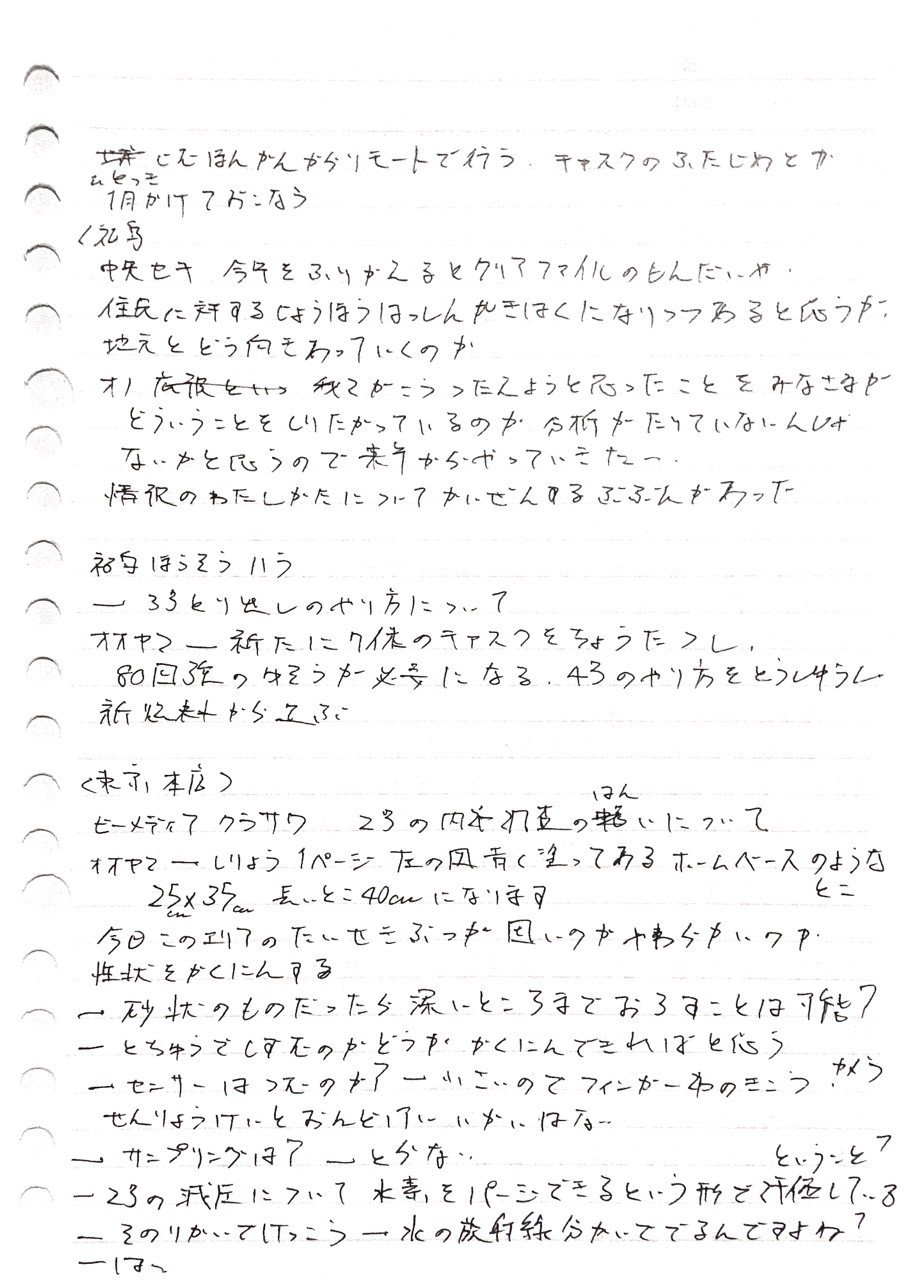 じむほんかんからリモートで行う. キャスクのふたじめとか
ひとつき
1月かけておこなう
〈福島
中央セキ 今年をふりかえるとクリアファイルのもんだいや.
住民に対するじょうほうはっしんがきはくになりつつあると思うが.
地元とどう向きあっていくのか
オノ 我々がこうつたえようと思ったことをみなさまが
どういうことをしりたがっているのか 分析がたりていないんじゃ
ないかと思うので来年からやっていきたー.
情報のわたしかたについてかいぜんするぶぶんがあった
福島ほうそう ハラ
― 3号とり出しのやり方について
オオヤマ ― 新たに7体のキャスクをちょうたつし.
80回強のゆそうが必要になる. 4号のやり方をとうしゅうし
新燃料から運ぶ
〈東京本店〉
ビーメディア クラサワ 2号の内部調査の
はん
いについて
オオヤマ ― しりょう1ページ 左の図 青く塗ってあるホームベースのような
とこ
25cm×35cm 長いとこ40cmになります
今日このエリアのたいせきぶつが固いのかやわらかいのか
性状をかくにんする
→ 砂状のものだったら深いところまでおろすことは可能?
― とちゅうでしずむのかどうかかくにんできればと思う
→ センサーはつむのか? ― 小さいのでフィンガーわのきこう. カメラ
せんりょうけいとおんどけい いがいはなー
→ サンプリングは? ― とらない.
ということ?
― 2号の減圧について 水素をパージできるという形で評価している
― そのりかいでけっこう ― 水の放射線分かいででるんですよね?
― はー